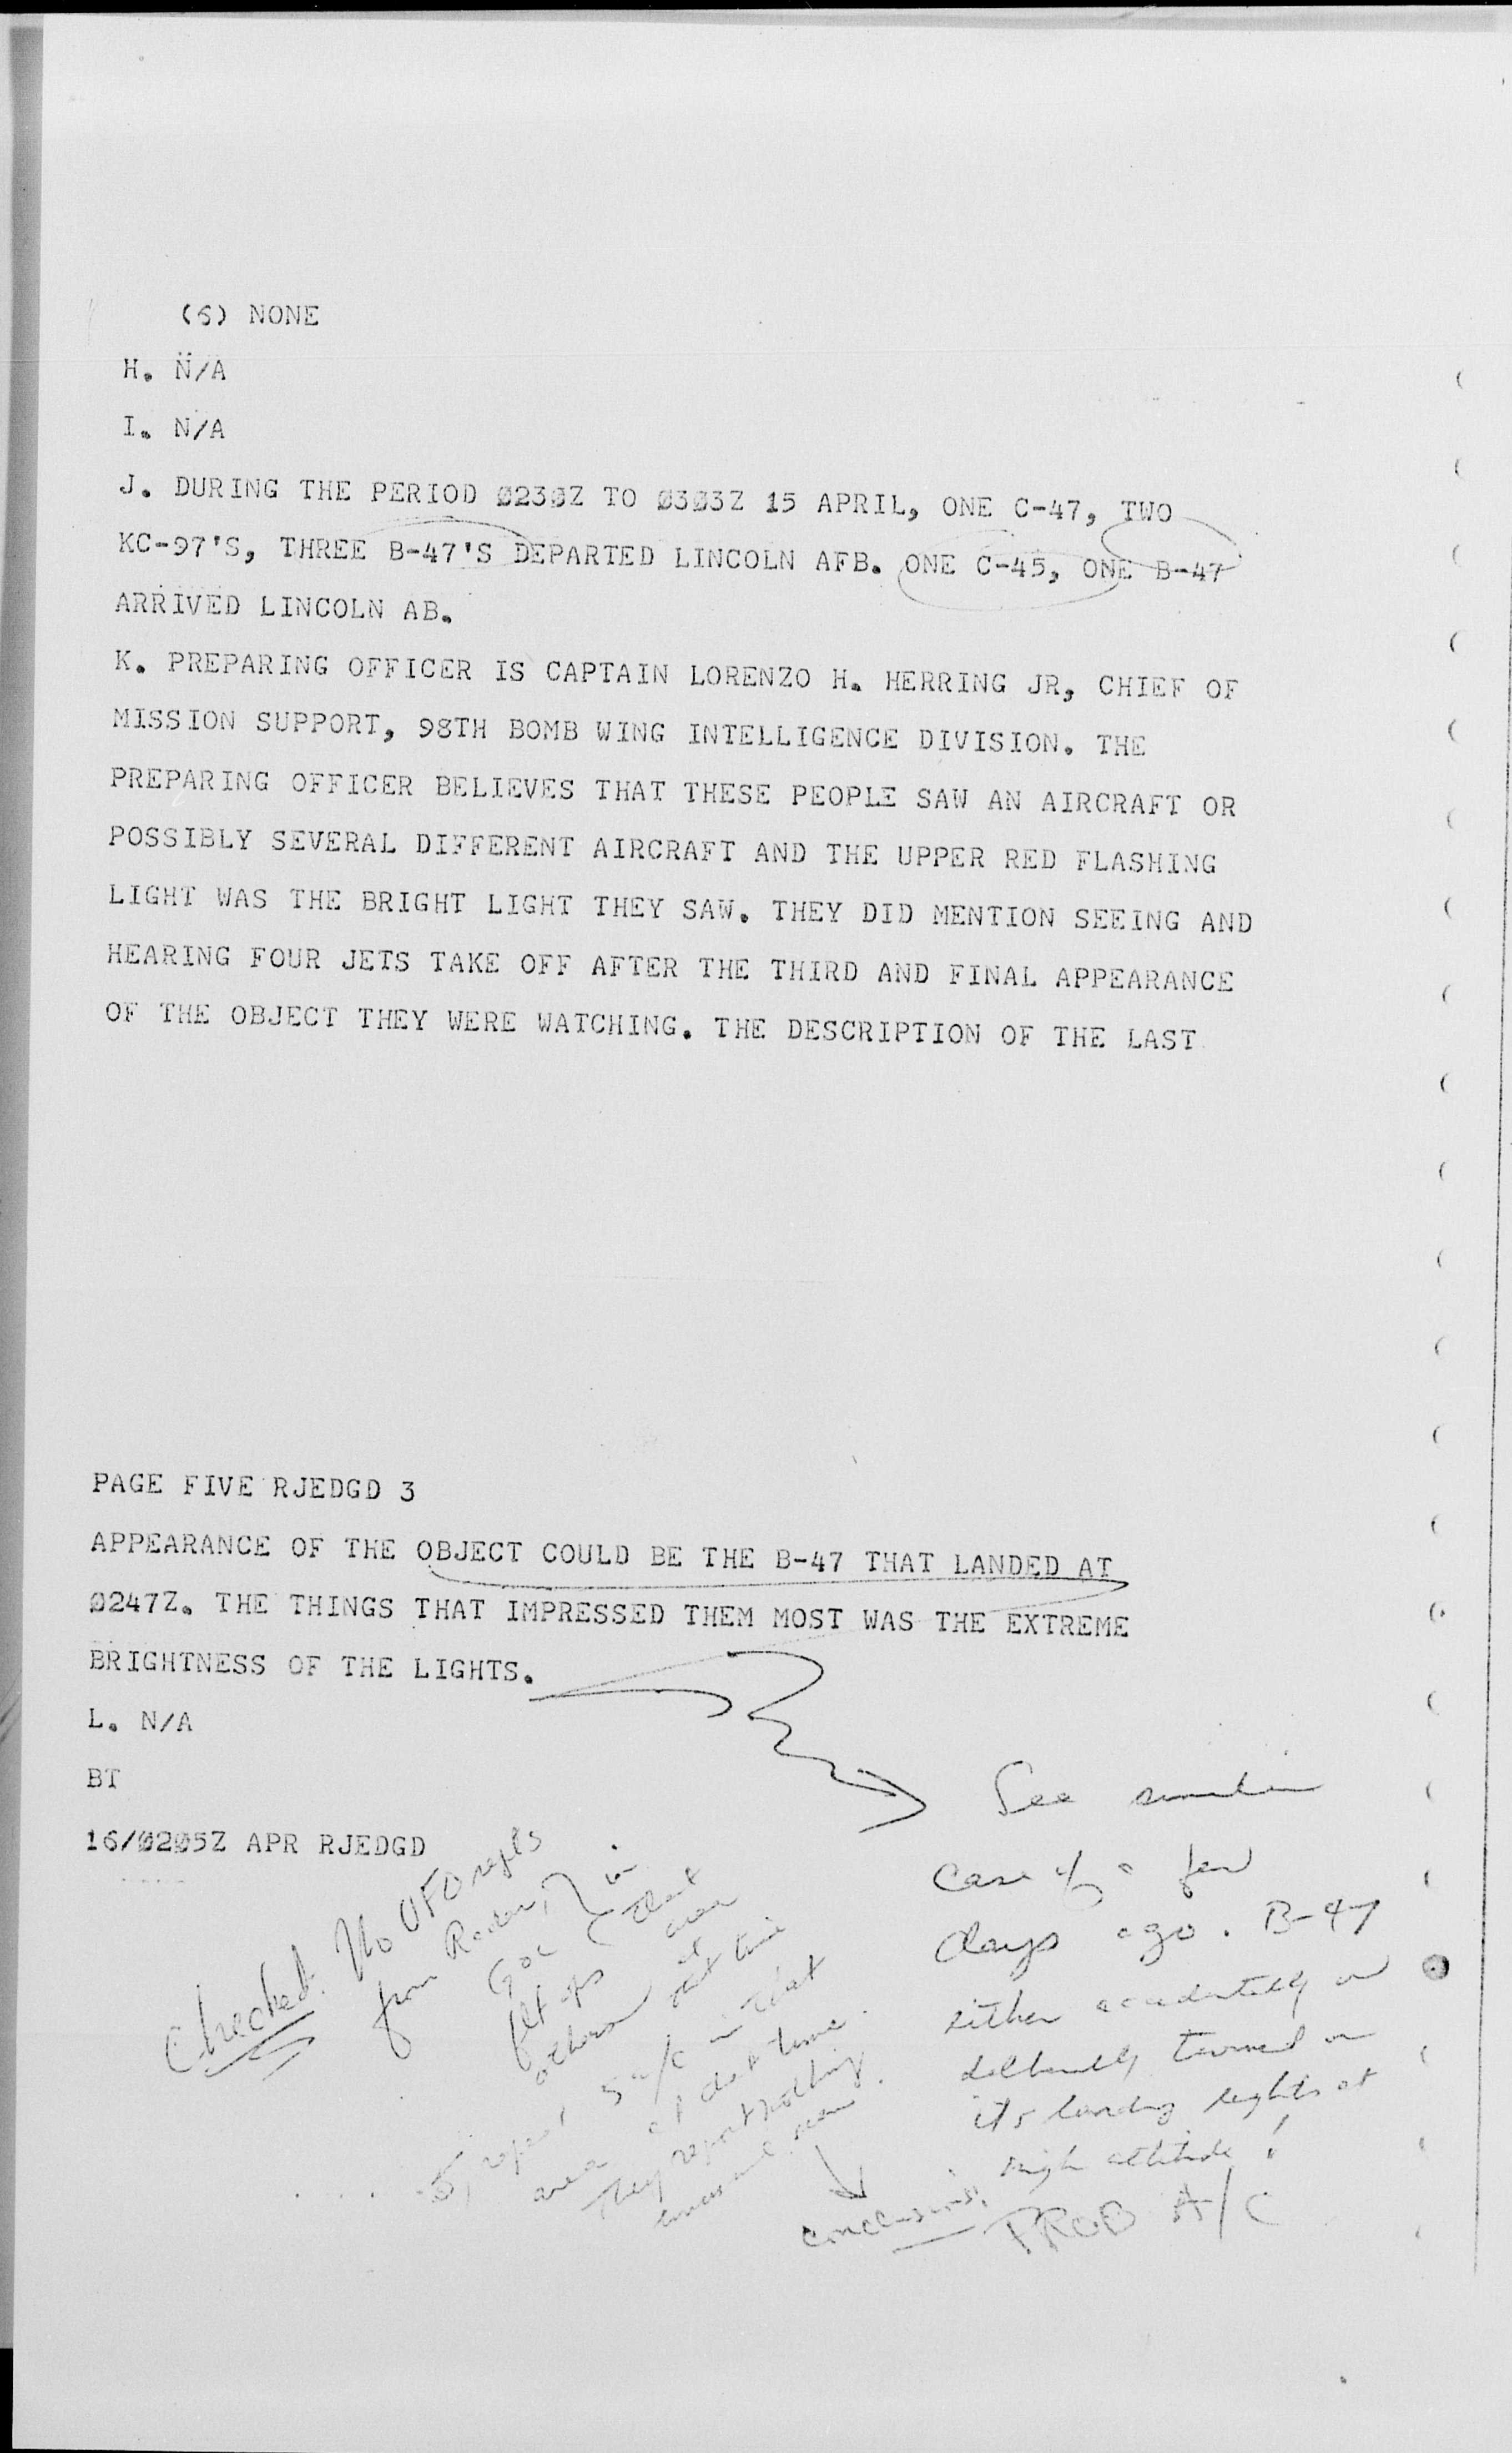 (6) NONE
H. N/A
I. N/A
J. DURING THE PERIOD 0230Z TO 0303Z 15 APRIL, ONE C-47, TWO
KC-97'S, THREE B-47'S DEPARTED LINCOLN AFB. ONE C-45, ONE B-47
ARRIVED LINCOLN AB.
K. PREPARING OFFICER IS CAPTAIN LORENZO H. HERRING JR, CHIEF OF
MISSION SUPPORT, 98TH BOMB WING INTELLIGENCE DIVISION. THE
PREPARING OFFICER BELIEVES THAT THESE PEOPLE SAW AN AIRCRAFT OR
POSSIBLY SEVERAL DIFFERENT AIRCRAFT AND THE UPPER RED FLASHING
LIGHT WAS THE BRIGHT LIGHT THEY SAW. THEY DID MENTION SEEING AND
HEARING FOUR JETS TAKE OFF AFTER THE THIRD AND FINAL APPEARANCE
OF THE OBJECT THEY WERE WATCHING. THE DESCRIPTION OF THE LAST
PAGE FIVE RJEDGD 3
APPEARANCE OF THE OBJECT COULD BE THE B-47 THAT LANDED AT
0247Z. THE THINGS THAT IMPRESSED THEM MOST WAS THE EXTREME
BRIGHTNESS OF THE LIGHTS.
L. N/A
BT
16/0205Z APR RJEDGD
Checked. No UFO
from Radar, in
GOC that
flt ops area
others at that time
5 a/c in that
area at that time.
They report nothing
unusual seen.
See similar
case of a few
days ago. B-47
either accidentally or
deliberately turned on
its landing lights at
high altitude!
conclusions: PROB A/C